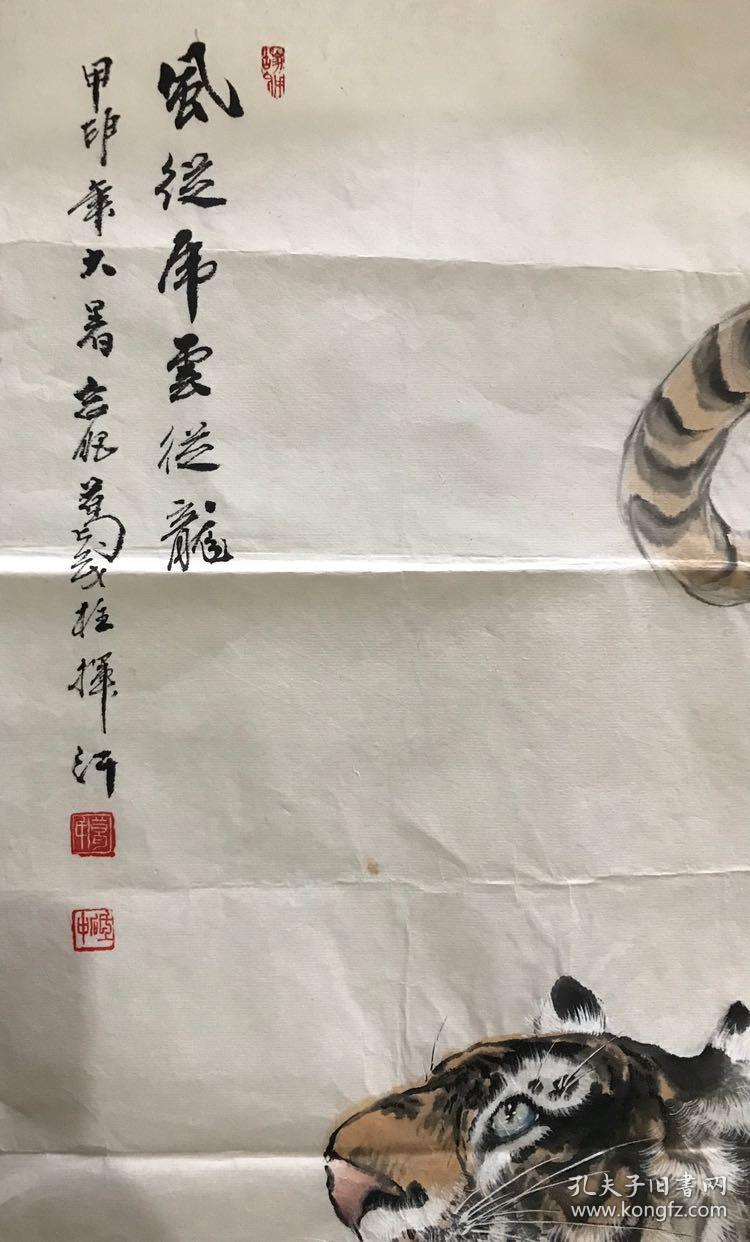 風從虎雲從龍
甲申年大暑 葛茂柱揮汗
孔夫子旧書网
www.kongfz.com